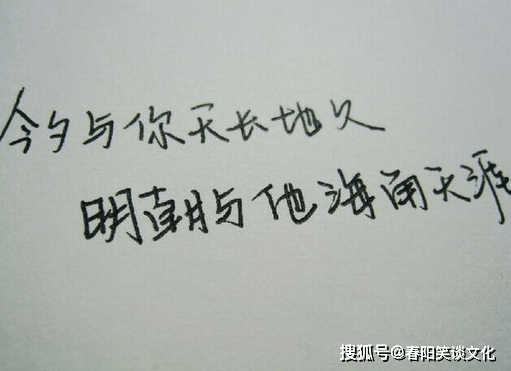 今夕与你天长地久
明朝与他海角天涯
搜狐号@春阳笑谈文化